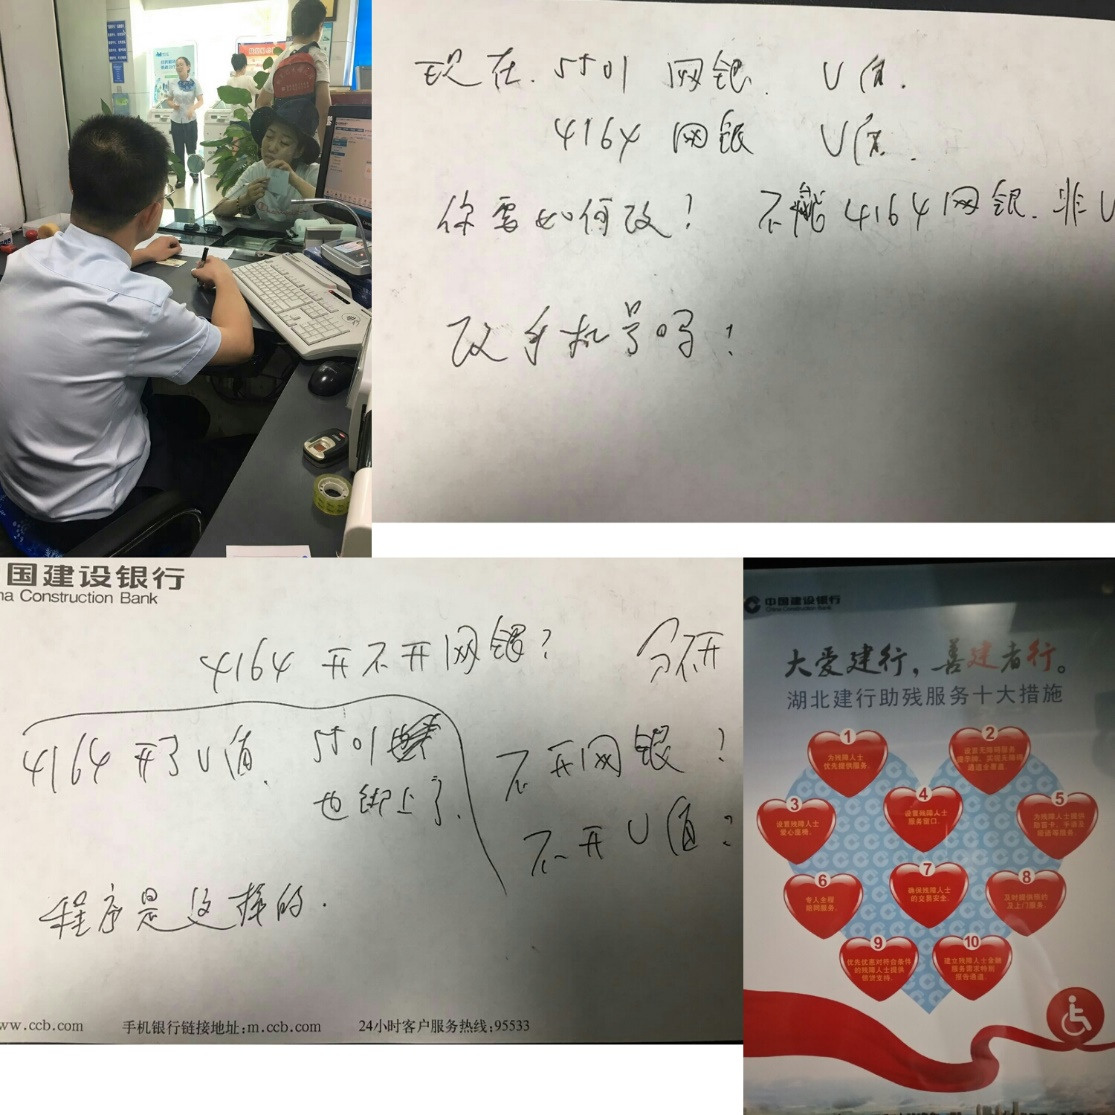 现在.5501网银. U盾.
4164网银 U盾.
你需如何改? 不能4164网银.非U
改手机号吗?
国建设银行
na Construction Bank
4164开不开网银? 分不开
4164开了U盾. 5501
也绑上了.
不开网银?
不开U盾?
程序是这样的.
ww.ccb.com 手机银行链接地址:m.ccb.com 24小时客户服务热线:95533
中国建设银行
China Construction Bank
大爱建行,善建者行。
湖北建行助残服务十大措施
1
为残障人士
优先提供服务。
2
3
设置残障人士
爱心座椅。
4
设置残障人士
服务窗口.
5
为残障人士提供
6
专人全程
陪同服务。
7
确保残障人士
的交易安全.
8
及时提供预约
及上门服务。
9
优先优惠对符合条件
的残障人士提供
信贷支持。
10
建立残障人士金融
服务需求特别
报告通道